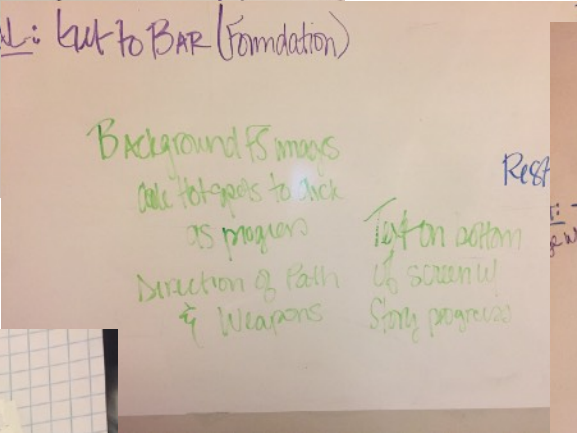 L: Get to BAR (Foundation)
Background FS images
Hotspots to click
as progress
Direction of Path
& Weapons
Text on bottom
of screen w/
Story progress
Rest